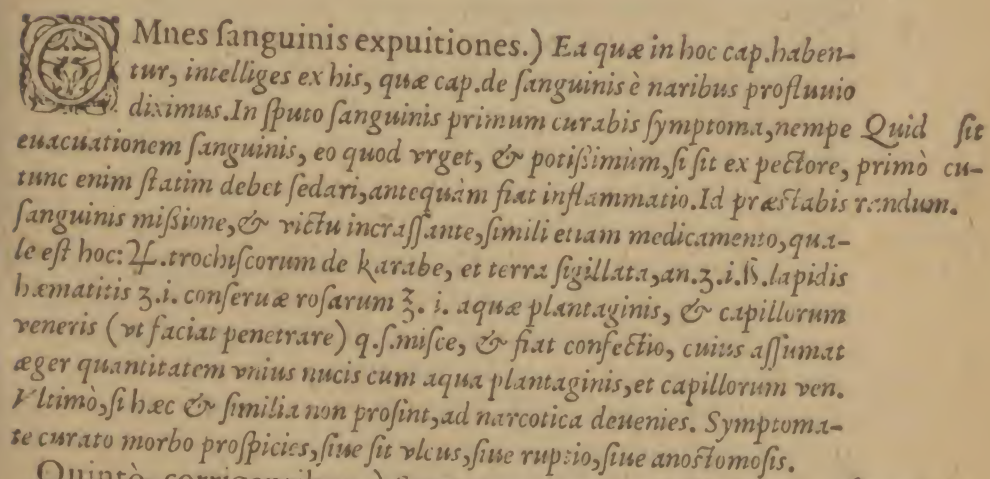 OMnes ſanguinis expuitiones.) Ea quæ in hoc cap.haben-
tur, intelliges ex his, quæ cap.de ſanguinis è naribus profluuio
diximus.In ſputo ſanguinis primum curabis ſymptoma,nempe
euacuationem ſanguinis, eo quod vrget, & potißimum,ſi ſit ex pectore,
tunc enim ſtatim debet ſedari,antequàm fiat inflammatio.Id præstabis
ſanguinis mißione,& victu incraſſante,ſimili etiam medicamento,qua-
le eſt hoc:℞.trochiſcorum de karabe, et terra ſigillata,an.ʒ.i.ß.lapidis
hæmatitis ʒ.i. conſeruæ roſarum ℥. i. aquæ plantaginis, & capillorum
veneris (vt faciat penetrare) q.ſ.miſce, & fiat confectio, cuius aſſumat
æger quantitatem vnius nucis cum aqua plantaginis,et capillorum ven.
Vltimò,ſi hæc & ſimilia non proſint,ad narcotica deuenies. Symptoma-
te curato morbo proſpicies,ſiue ſit vlcus,ſiue ruptio,ſiue anostomoſis.
Quid ſit
primò cu-
randum.
Quintò